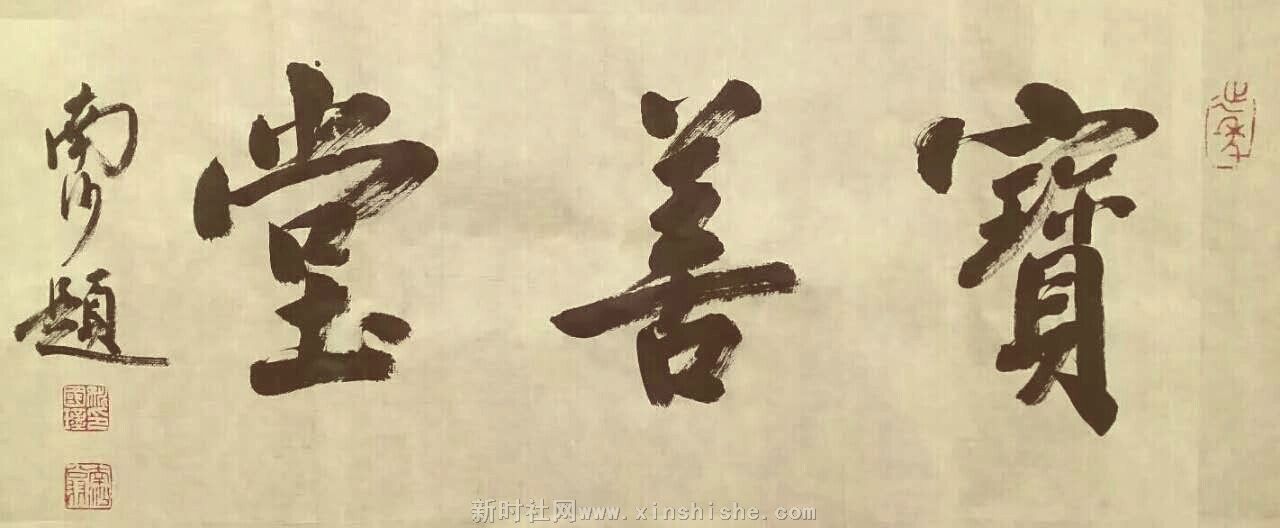 寳善堂
南沙題
新时社网www.xinshishe.com